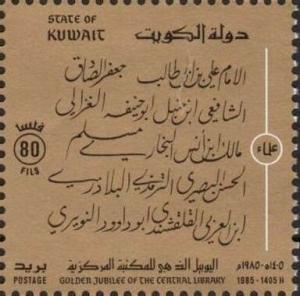 STATE OF
KUWAIT
دولة الكويت
الامام علي بن ابي طالب جعفر الصادق
الشافعي ابن حنبل ابو حنيفه الغزالي
مالك ابن انس البخاري مسلم
الحسن البصري الترمذي البلاذري
ابن العربي القلقشندي ابو داوود النويري
فلسا
80
FILS
علماء
بريد
POSTAGE
اليوبيل الذهبي للمكتبة المركزية
GOLDEN JUBILEE OF THE CENTRAL LIBRARY
١٤٠٥هـ-١٩٨٥م
1985-1405 H